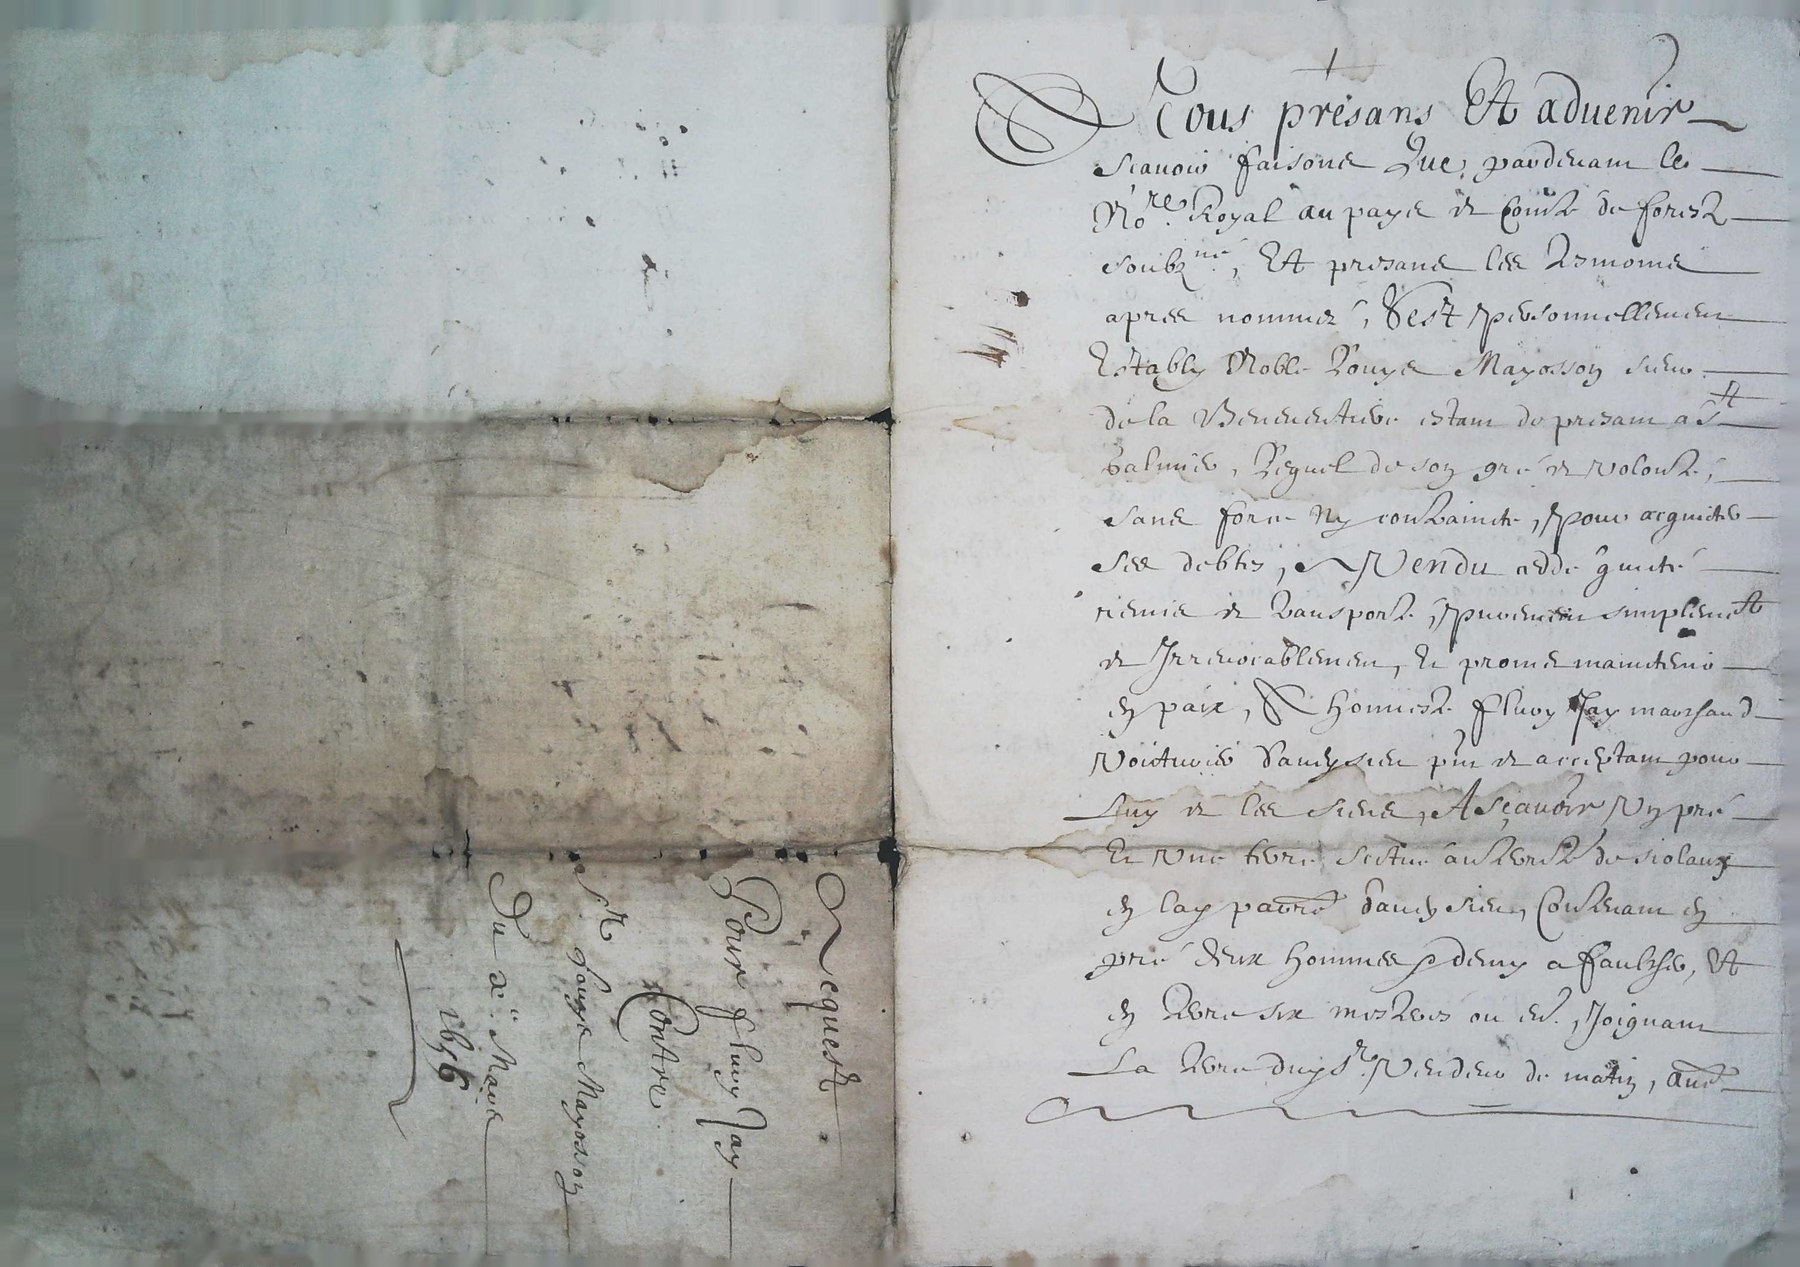 A Tous presans Et aduenir
scauoir faisons Que, pardeuant le
No.re Royal au pays et Conté de forestz
soubz.né, Et presans les tesmoins
apres nommez, S'est personnellement
Estably Noble Louys Mayosson sieur
de la estant de presant a St
Galmier, Lequel de son gré et volonté,
sans force Ny contrainte, pour acquiter
ses debtes, a Vendu ceddé quicté
remis et transporté, purement simplement
et Irreuocablement, Et promet maintenir
en paix, A honneste fleury Jay marchand
Voicturier d'ancysieu pnt et acceptant pour
Luy et les siens, A sçauoir Vn pré
Et Vne terre scitué
en lay parre d'ancysieu, Contenant en
pré deux hommes & demy a faulcher, Et
en terre six mestres ou en.n, Joignant
La terre dud s.r Vendeur de matin, aut.e
Requeste
Pour fleury Jay
Contre
S.r Louys Mayosson
Du x.e Mars
1656